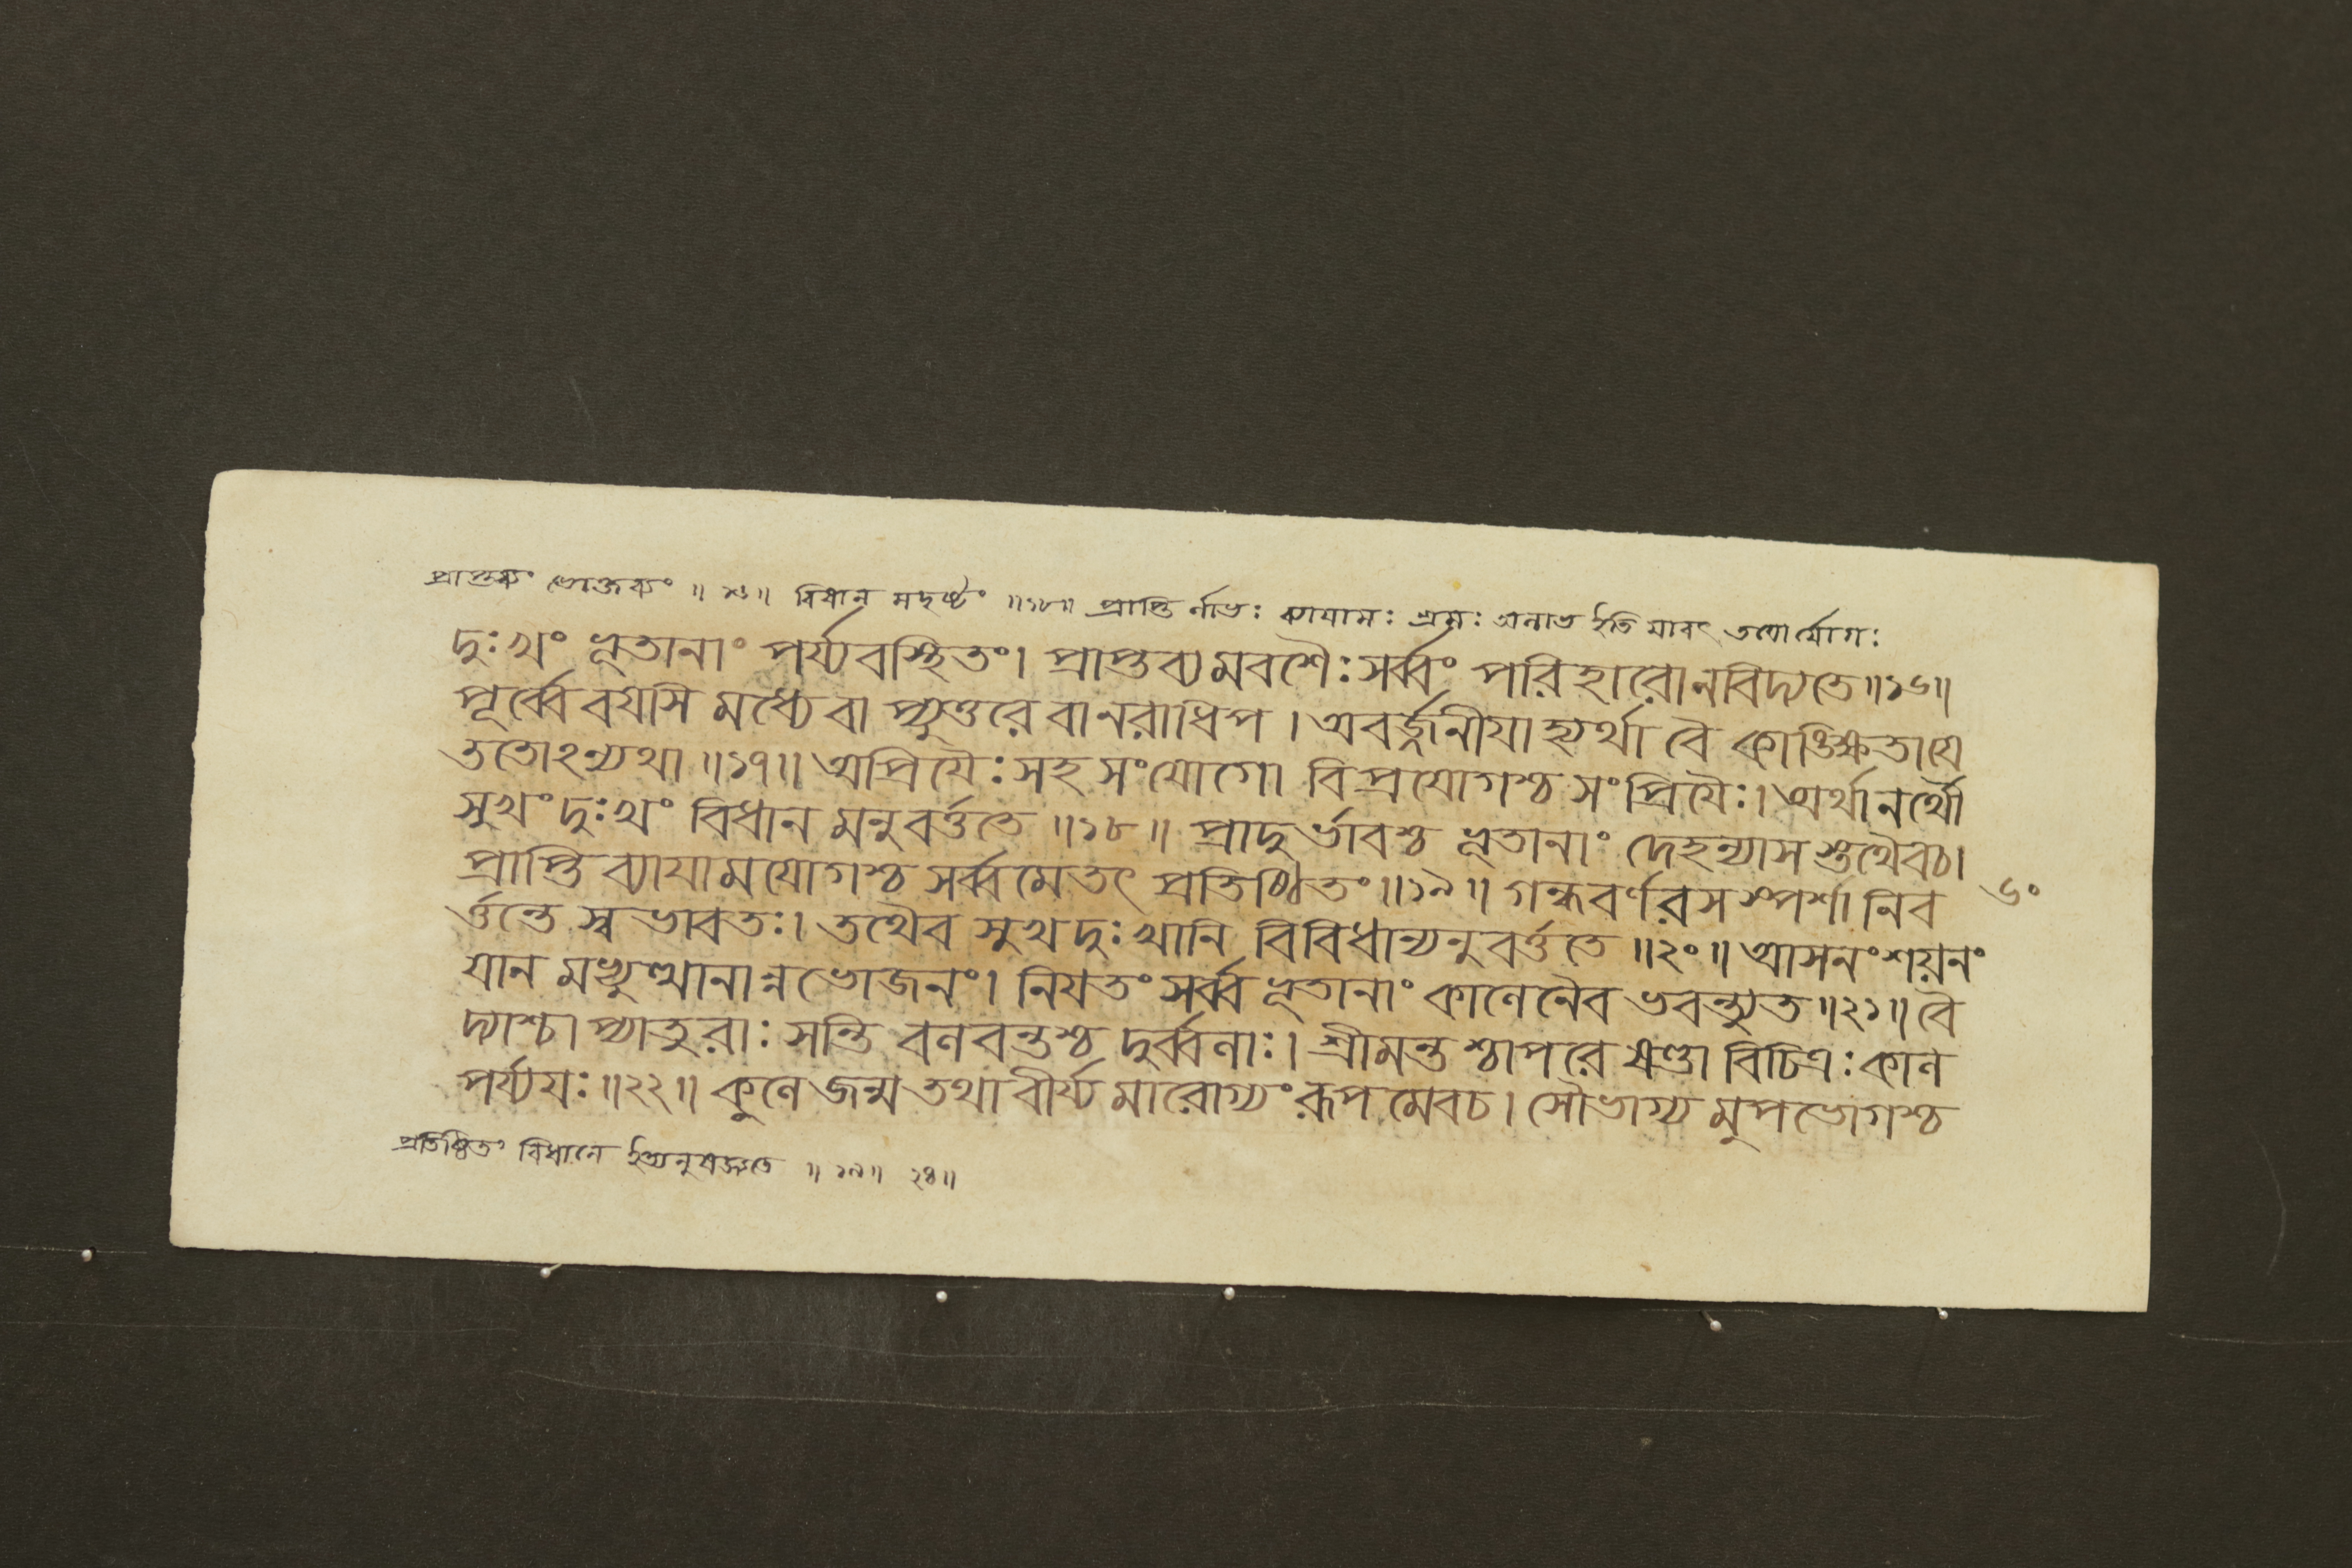 প্রাপ্তব্যং ভোক্তব্যং ॥ ১৬॥ বিধান মদৃষ্টং ॥১৮॥ প্রাপ্তি র্লাভঃ ব্যাযামঃ শ্রমঃ অলাভ ইতি যাবৎ তযোর্যোগঃ
দুঃখং ভূতানাং পর্য্যবস্থিতং। প্রাপ্তব্যমবশৈঃ সর্ব্বং পরিহারোনবিদ্যতে॥১৬॥
পূর্ব্বে বযসি মধ্যেবা প্যুত্তরে বানরাধিপ । অবর্জ্জনীযাহ্যর্থা বৈ কাঙিক্ষতাযে
ততোঽন্যথা ॥১৭॥ অপ্রিযৈঃ সহ সংযোগো বিপ্রযোগশ্চ সংপ্রিযৈঃ। অর্থানর্থৌ
সুখং দুঃখং বিধান মনুবর্ত্ততে ॥১৮॥ প্রাদুর্ভাবশ্চ ভূতানাং দেহন্যাস স্তথৈবচ।
প্রাপ্তি ব্যাযামযোগশ্চ সর্ব্বমেতৎ প্রতিষ্ঠিতং॥১৯॥ গন্ধবর্ণরস স্পর্শা নিব
র্ত্তন্তে স্বভাবতঃ। তথৈব সুখদুঃখানি বিবিধান্যনুবর্ত্ততে ॥২০॥ আসনংশয়নং
যান মভ্যুত্থানান্নভোজনং। নিযতং সর্ব্বভূতানাং কালেনৈব ভবন্ত্যুত॥২১॥ বৈ
দ্যাশ্চা প্যাতুরাঃ সন্তি বলবন্তশ্চ দুর্ব্বলাঃ। শ্রীমন্ত শ্চাপরে ষণ্ডা বিচিত্রঃ কাল
পর্য্যযঃ॥২২॥ কুলে জন্ম তথা বীর্য্য মারোগ্যং রূপমেবচ। সৌভাগ্য মুপভোগশ্চ
৬০
প্রতিষ্ঠিতং বিধানে ইত্যনুষজ্যতে ॥ ১৯॥